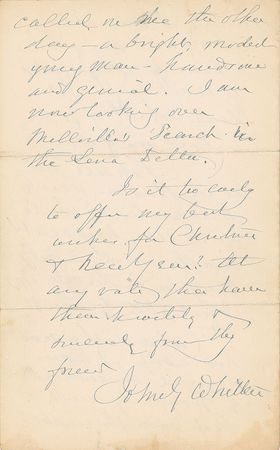 called on me the other
day – a bright, modest
young man – handsome
and genial. I am
now looking over
Melville's Search in
the Lena Delta.
Is it too early
to offer my best
wishes for Christmas
& New Year? At
any rate thee have
them heartily &
sincerely from thy
friend
John G Whittier